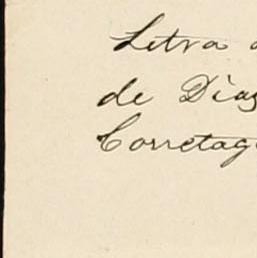 Letra
de Dias
Corretag